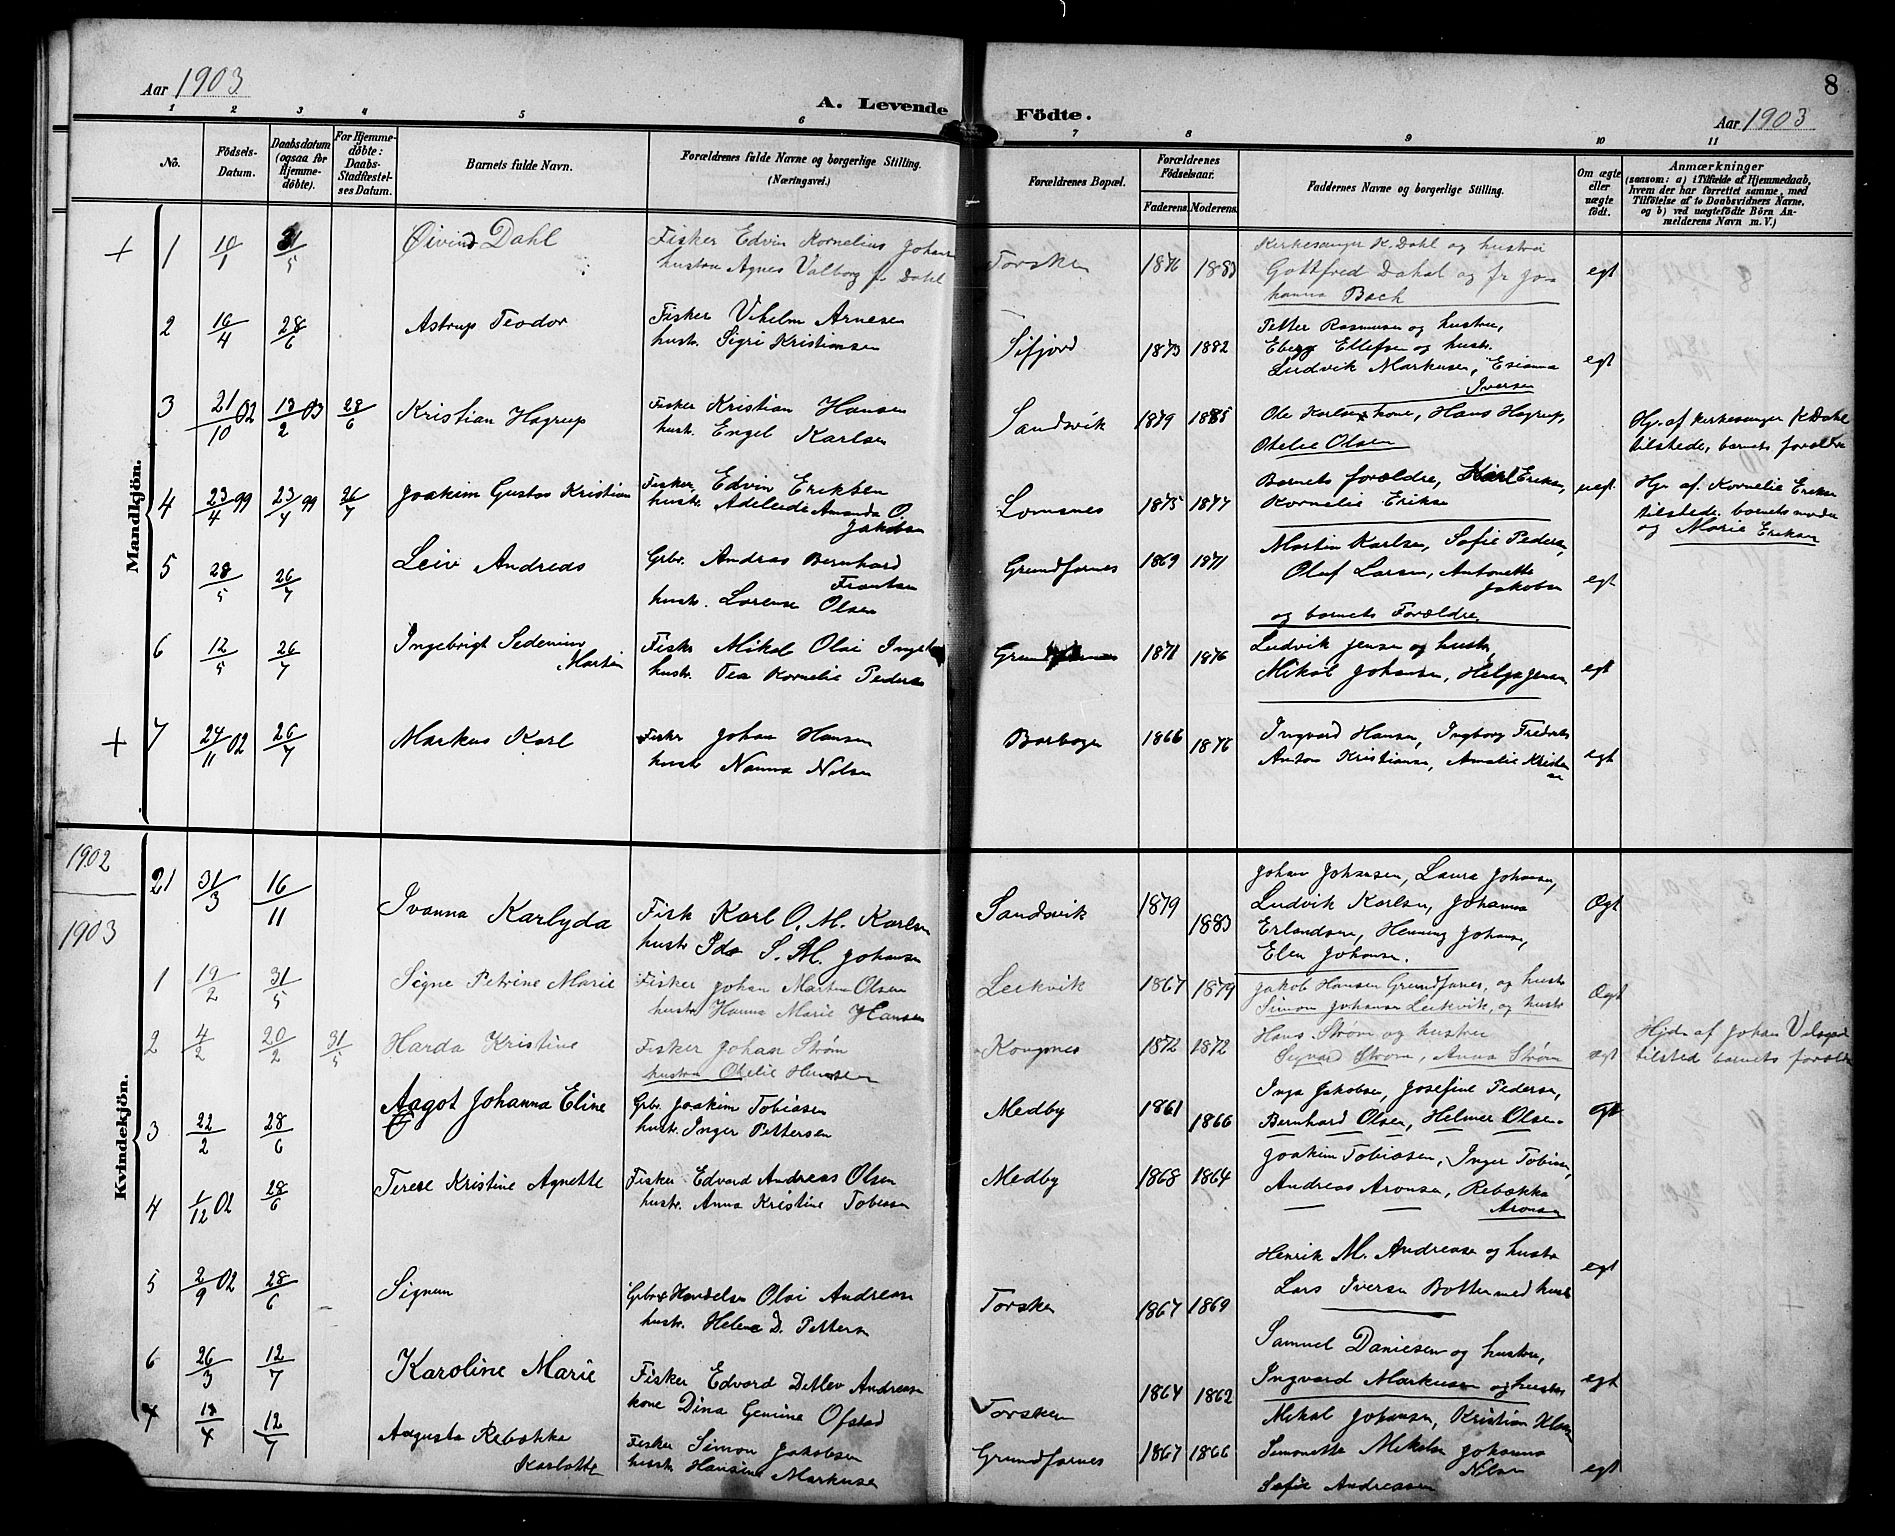 8
Aar 1903
A. Levende Födte.
Aar 1903
1 2 3 4 5 6 7 8 9 10 11
No.
Födsels-Datum.
Daabsdatum (ogsaa for Hjemmedöbte).
For Hjemmedöbte: Daabs-Stadfæstelses Datum.
Barnets fulde Navn.
Forældrenes fulde Navne og borgerlige Stilling. (Næringsvei.)
Forældrenes Bopæl.
Forældrenes Födselsaar.
Faderens. Moderens.
Faddernes Navne og borgerlige Stilling.
Om ægte eller uægte födt.
Anmærkninger
(saasom: a) i Tilfælde af Hjemmedaab, hvem der har forrettet samme, med Tilföielse af to Daabsvidners Navne, og b) ved uægtefödte Börn Anmelderens Navn m. V.)
Mandkjön.
+ 1 10/1 31/5 Øivind Dahl
Fisker Edvin Kornelius Johans
hustru Agnes Valborg f. Dahl
Torsken 1876 1883
Kirkesanger K. Dahl og hustru
Gottfred Dahl og fr Jo-
hanna Bach
egt
2 16/4 28/6 Astrup Teodor
Fisker Vilhelm Arnesen
hustr. Sigri Kristiansen
Sifjord 1873 1882
Petter Rasmusen og hustru,
Ellefsen og hustr.
Ludvik Markusen,
Iversen
egt
3 21/10 02 13/2 03 28/6 Kristian Hagrup
Fisker Kristian Hansen
hust. Engel Karlsen
Sandsvik 1879 1885
Ole Karlsen kone, Hans Hagrup,
Otelie Olsen
Hj. af kirkesanger K Dahl
tilstede, barnets forældre
4 23/4 99 23/4 99 26/7 Joakim Gustav Kristian
Fisker Edvin Eriksen
hustr. Adeleide Amanda O.
Jakobsen
Lomsnes 1875 1877
Barnets forældre, Karl Eriksen,
Kornelie Eriksen
uegt
Hj. af. Kornelie Eriksen
tilstede. barnets moder
og Marie Eriksen
5 28/5 26/7 Leiv Andreas
Grbr. Andreas Bernhard
Frantsen
hustr. Lorense Olsen
Grundfarnes 1869 1871
Martin Karlsen, Sofie Peders,
Oluf Larsen, Antonette
Jakobsen
og barnets Forældre
egt
6 12/5 26/7 Ingebrigt
Martin
Fisker Mikal Olai
hustr. Tea Kornelie Peders
1871 1876
Ludvik Jensen og hustr,
Mikal Johansen, Helga Jensen
egt
+ 7 24/11 02 26/7 Markus Karl
Fisker Johan Hansen
hustr. Nanna Nilsen
1866 1876
Ingvard Hansen, Ingborg Frederiks
Anton Kristiansen, Amalie Kristen
sen
egt
Kvindekjön.
1902
21 31/3 16/11 Ivanna Karlyda
Fisk Karl O. M. Karlsen
hustr Ida S. M. Johansen
Sandsvik 1879 1883
Johan Johansen, Laura Johansen,
Ludvik Karlsen, Johanna
Erlandsen, Henning Johansen,
Elen Johansen.
Ægt
1903
1 19/2 31/5 Signe Petrine Marie
Fisker Johan Martin Olsen
hustr Hanna Marie Hansen
Leikvik 1867 1879
Jakob Hansen Grundfarnes, og hustr
Simon Johansen Leikvik, og hustr
Ægt
2 4/2 20/2 31/5 Harda Kristine
Fisker Johan Strøm
hustru Otelie Hansen
Kongsnes 1872 1872
Hans Strøm og hustru
Sigvard Strøm, Anna Strøm
ægt
Hjd. af Johan
tilsted barnets forældre
3 22/2 28/6 Aagot Johanna Eline
Grbr. Joakim Tobiasen
hustr. Inger Pettersen
Medby 1861 1866
Inga Jakobsen, Josefine Pedersen,
Bernhard Olsen, Helmer Olsen.
egt
4 1/12 02 28/6 Terese Kristine Agnette
Fisker Edvard Andreas Olsen
hustr. Anna Kristine Tobiasen
Medby 1868 1864
Joakim Tobiasen, Inger Tobiasen,
Andreas Aronsen, Rebækka
Aronsen
5 2/9 02 28/6 Signun
Grbr Handelsm Olai Andreasen
hustr. Helene D. Pettersen
Torsken 1867 1869
Henrik M. Andreasen og hustr
Lars Iversen Botten med hustr
egt
6 26/3 12/7 Karoline Marie
Fisker Edvard Detlev Andreasen
kone Dina Gemine Ofstad
Torsken 1864 1862
Samuel Danielsen og hustru,
Ingvard Markusen og hustr
egt
7 19/4 12/7 Augusta Rebækka
Karlotte
Fisker Simon Jakobsen
hustr Hansine Markusen
Grundfarnes 1867 1866
Mikal Johansen, Kristian
Simonette Mikalsen Johanna
Nilsen
Sofie Andreasen
egt